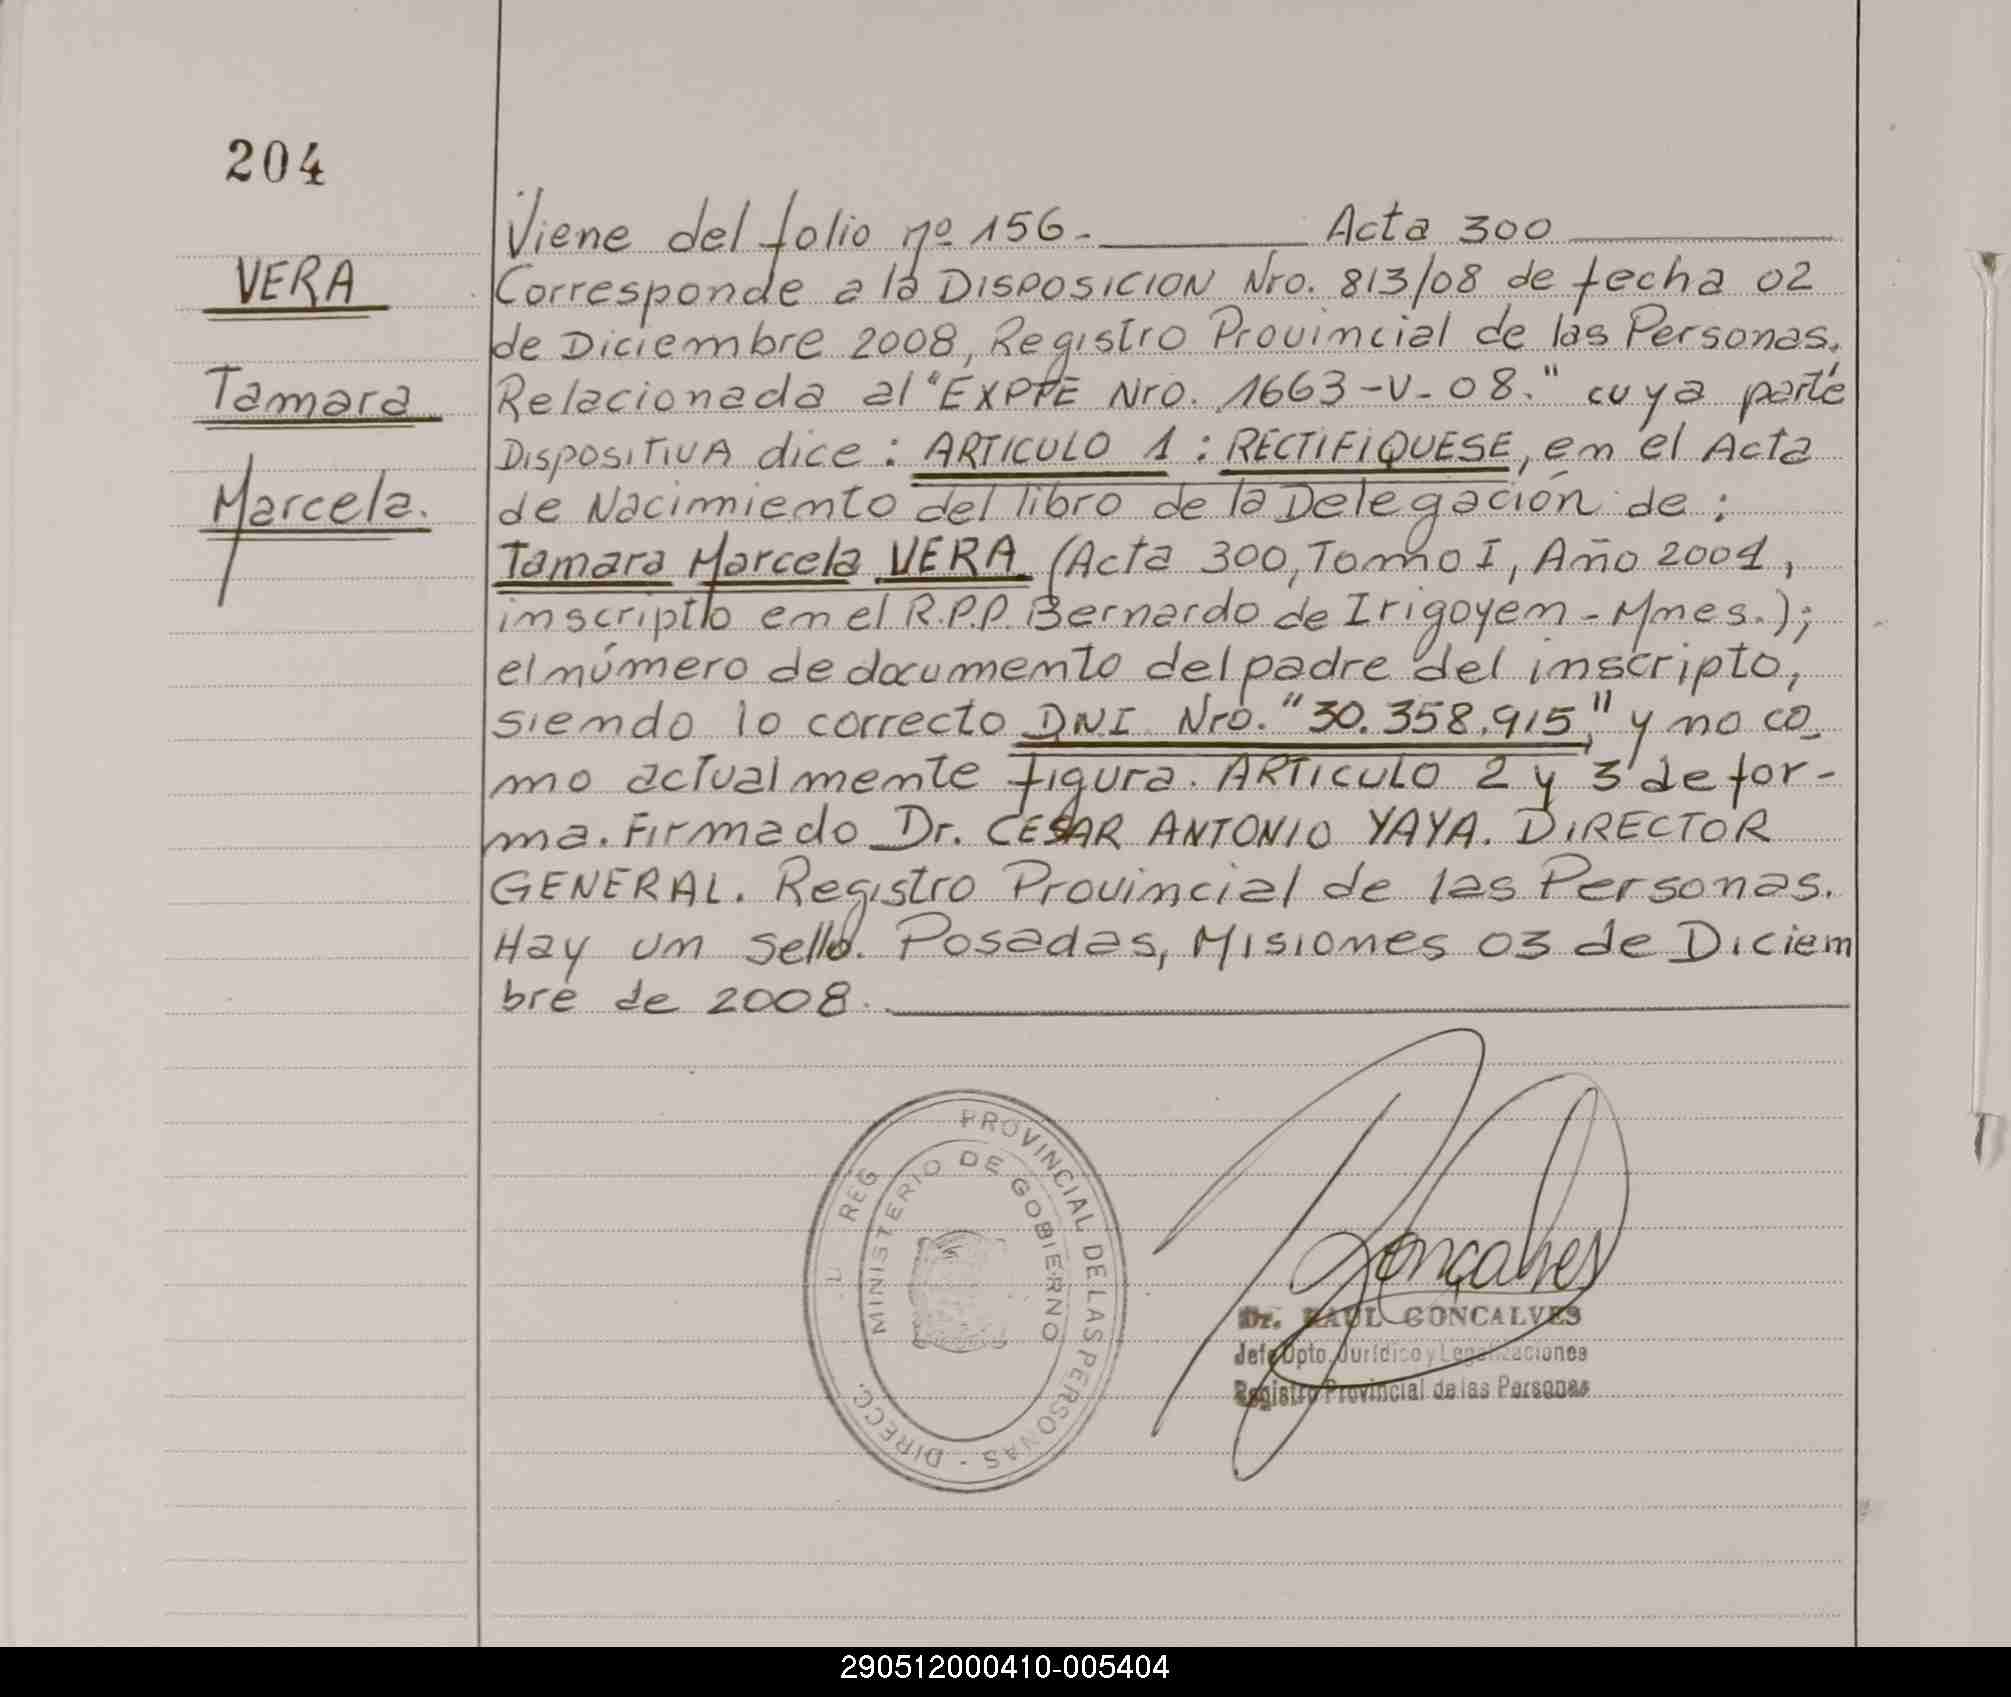 204
VERA
Tamara
Marcela.
Viene del folio nº 156.- Acta 300
Corresponde a la DISPOSICION Nro. 813/08 de fecha 02
de Diciembre 2008, Registro Provincial de las Personas.
Relacionada al "EXPTE Nro. 1663-V-08." cuya parte
DISPOSITIVA dice: ARTICULO 1: RECTIFIQUESE, en el Acta
de Nacimiento del libro de la Delegación de:
Tamara Marcela VERA (Acta 300, Tomo I, Año 2001,
inscripto en el R.P.P. Bernardo de Irigoyen - Mnes.);
el número de documento del padre del inscripto,
siendo lo correcto DNI Nro. "30.358.915," y no co-
mo actualmente figura. ARTICULO 2 y 3 de for-
ma. Firmado Dr. CESAR ANTONIO YAYA. DIRECTOR
GENERAL. Registro Provincial de las Personas.
Hay un sello. Posadas, Misiones 03 de Diciem
bre de 2008.
PROVINCIAL DE LAS PERSONAS - DIRECC.
REG
MINISTERIO DE GOBIERNO
Goncalves
Dr. RAUL GONCALVES
Jefe Dpto. Jurídico y Legalizaciones
Registro Provincial de las Personas
290512000410-005404